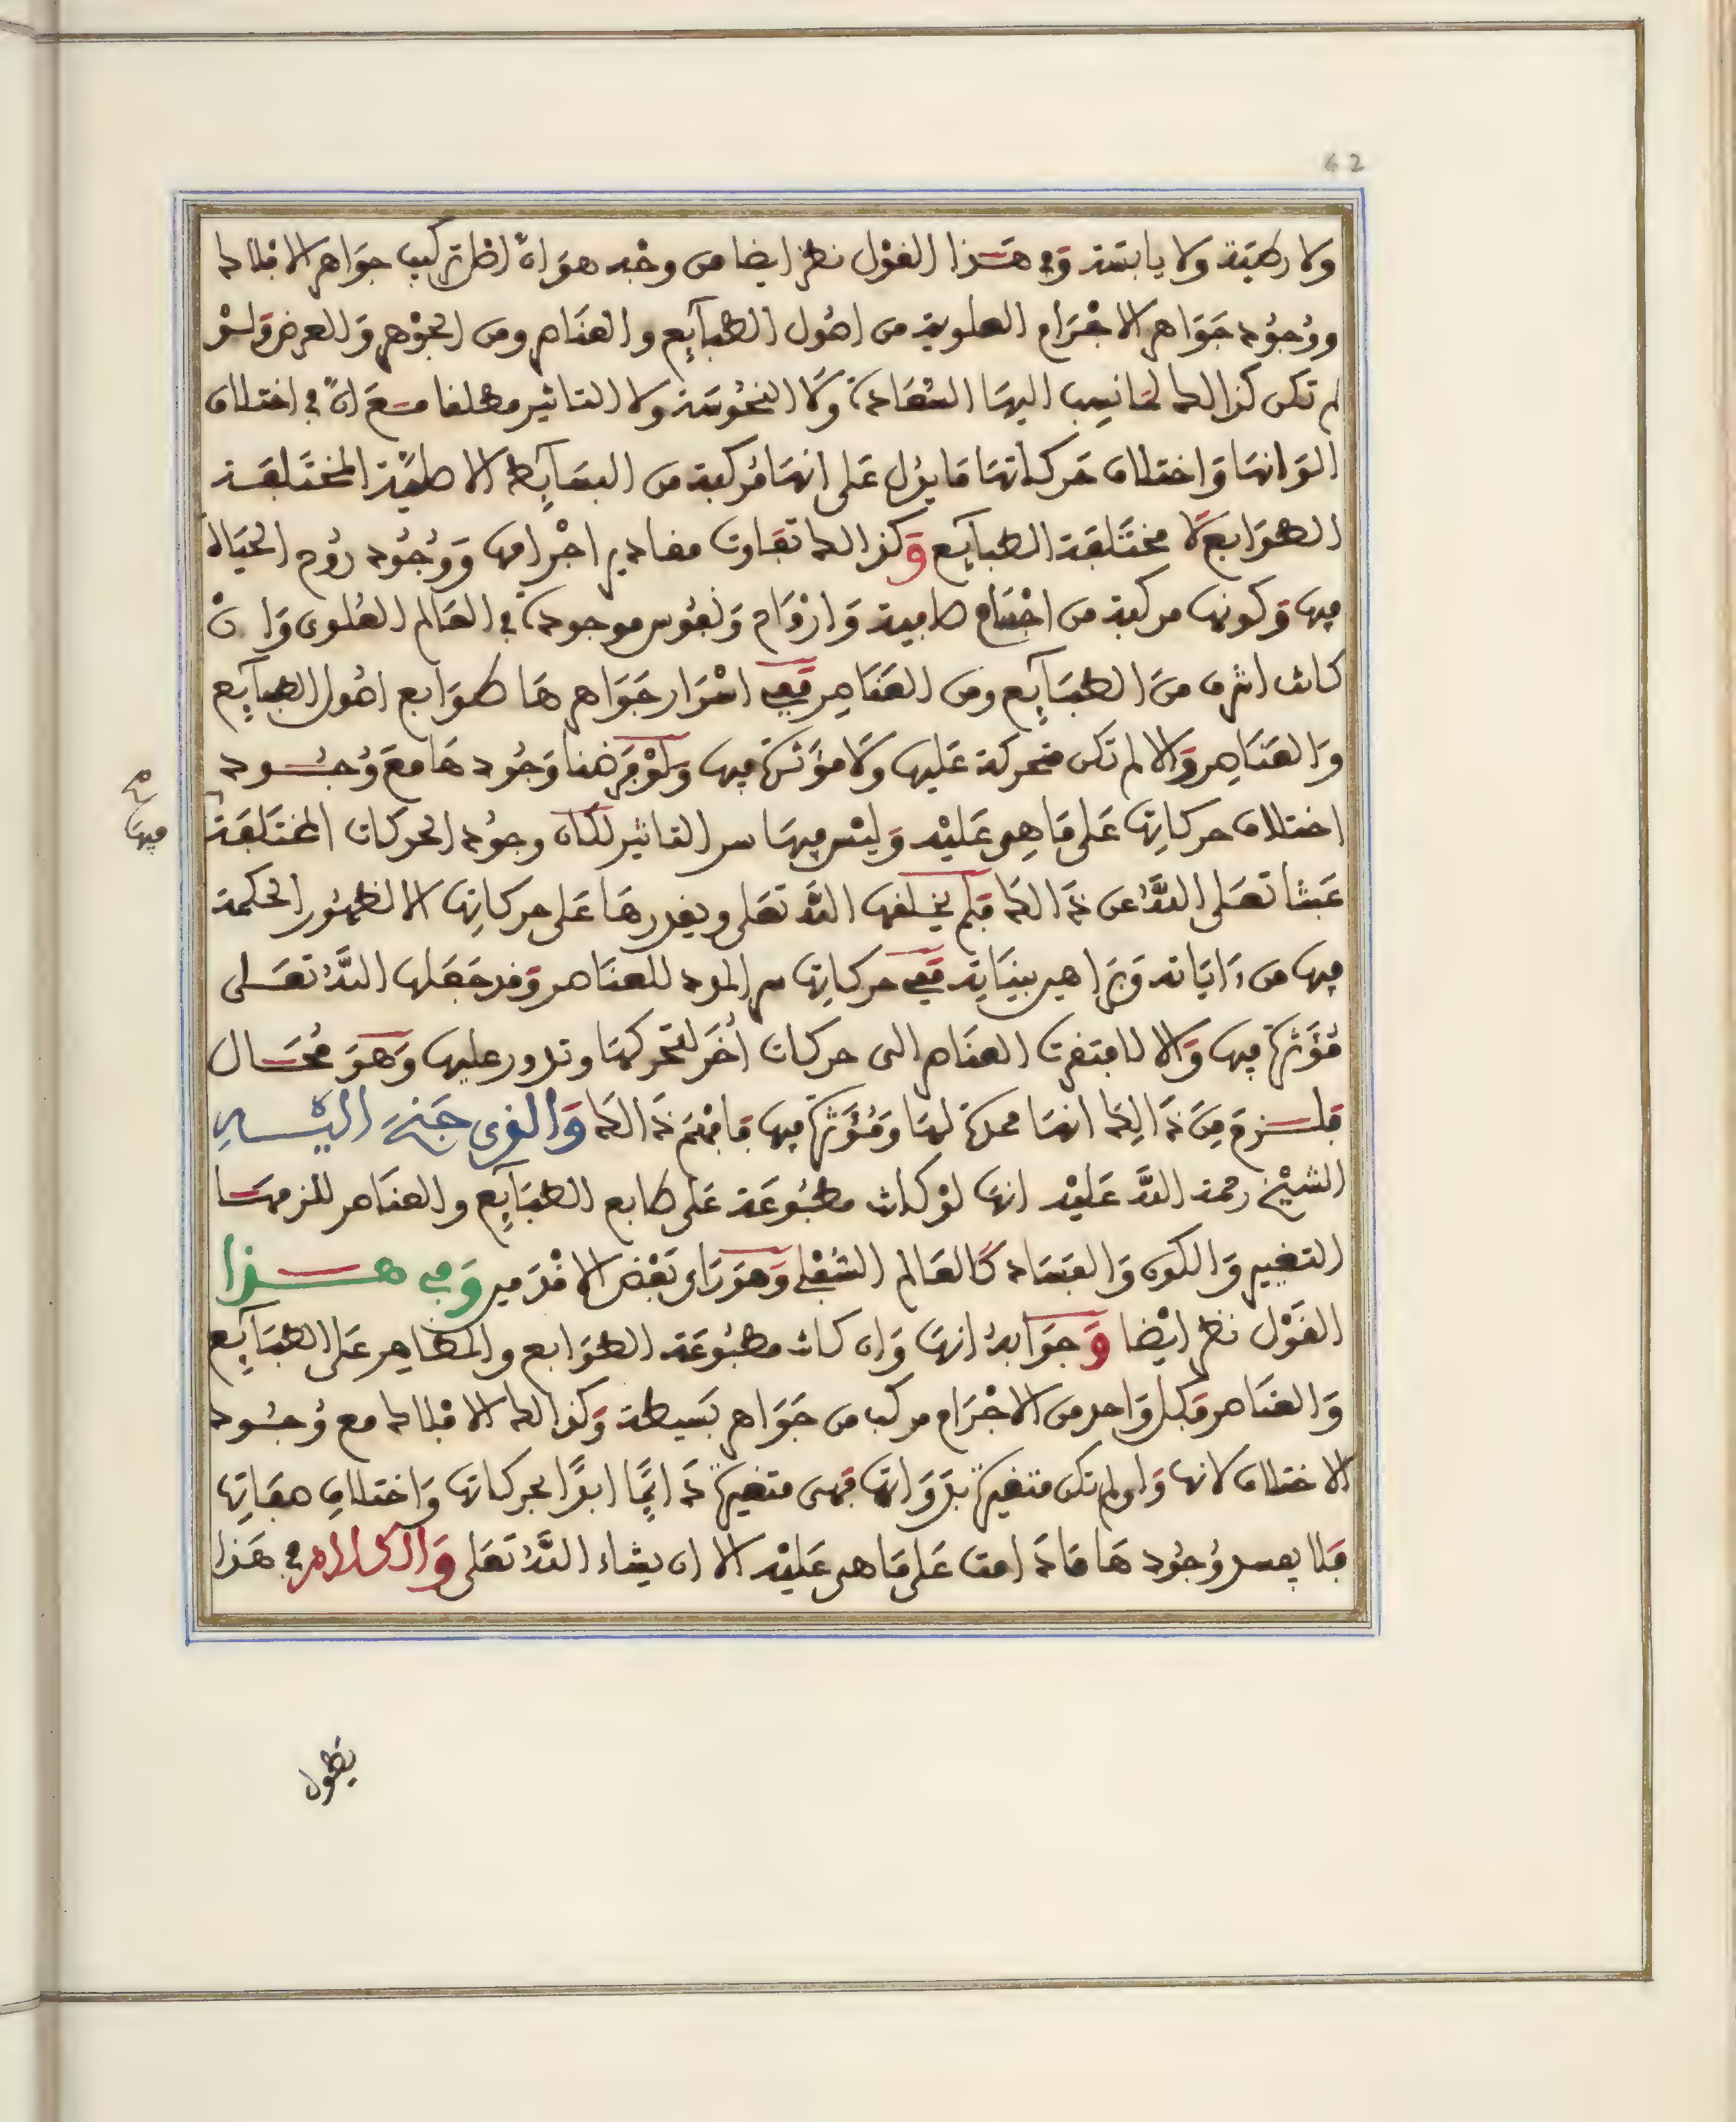 62
ولا رطبة ولا يابسة وفي هذا القول نظر ايضا من وجه هو ان اصل تركيب جواهر الافلاك
ووجود جواهر الاجرام العلوية من اصول الطبآئع والعناصر ومن الجوهر والعرض ولو
لم تكن كذالك لما نسب اليها السعادة ولا النحوسة ولا التاثير مطلقا مع ان في اختلاف
الوانها واختلاف حركاتها ما يدل على انها مركبة من البسآئط الاصلية المختلفة
الطوابع لا مختلفة الطبآئع وكذالك تفاوت مقادير اجرامها ووجود روح الحياة
فيها وكونها مركبة من اجسام صافية وارواح ونفوس موجودة في العالم العلوي وان
كانت اشرف من الطبآئع ومن العناصر ففي اسرار جواهرها طوابع اصول الطبآئع
والعناصر والا لم تكن متحركة عليها ولا مؤثرة فيها ولو فرضنا وجودها مع وجود
اختلاف حركاتها على ما هي عليه وليس فيها سر التاثير لكان وجود الحركات المختلفة
فيها صح
عبثا تعلى الله عن ذالك فلم يخلقها الله تعلى ويقدرها على حركاتها الا لظهور الحكمة
فيها من ءاياته وبراهين بيناته ففي حركاتها سر المدد للعناصر وقد جعلها الله تعلى
مؤثرة فيها والا لافتقرت العناصر الى حركات أخر لتحركها وتدور عليها وهو محال
فلزم من ذالك انها محركة لها ومؤثرة فيها فافهم ذالك والذي جنح اليه
الشيخ رحمة الله عليه انها لو كانت مطبوعة على طابع الطبآئع والعناصر للزمها
التغيير والكون والفساد كالعالم السفلي وهو راي بعض الاقدمين وفي هذا
القول نظر ايضا وجوابه انها وان كانت مطبوعة الطوابع والمظاهر على الطبآئع
والعناصر فكل واحد من الاجرام مركب من جواهر بسيطة وكذالك الافلاك مع وجود
الاختلاف لانها ولو لم تكن متغيرة بذواتها فهي متغيرة دايما ابدا بحركاتها واختلاف صفاتها
فلا يفسد وجودها ما دامت على ما هي عليه الا ان يشاء الله تعلى والكلام في هذا
يطول